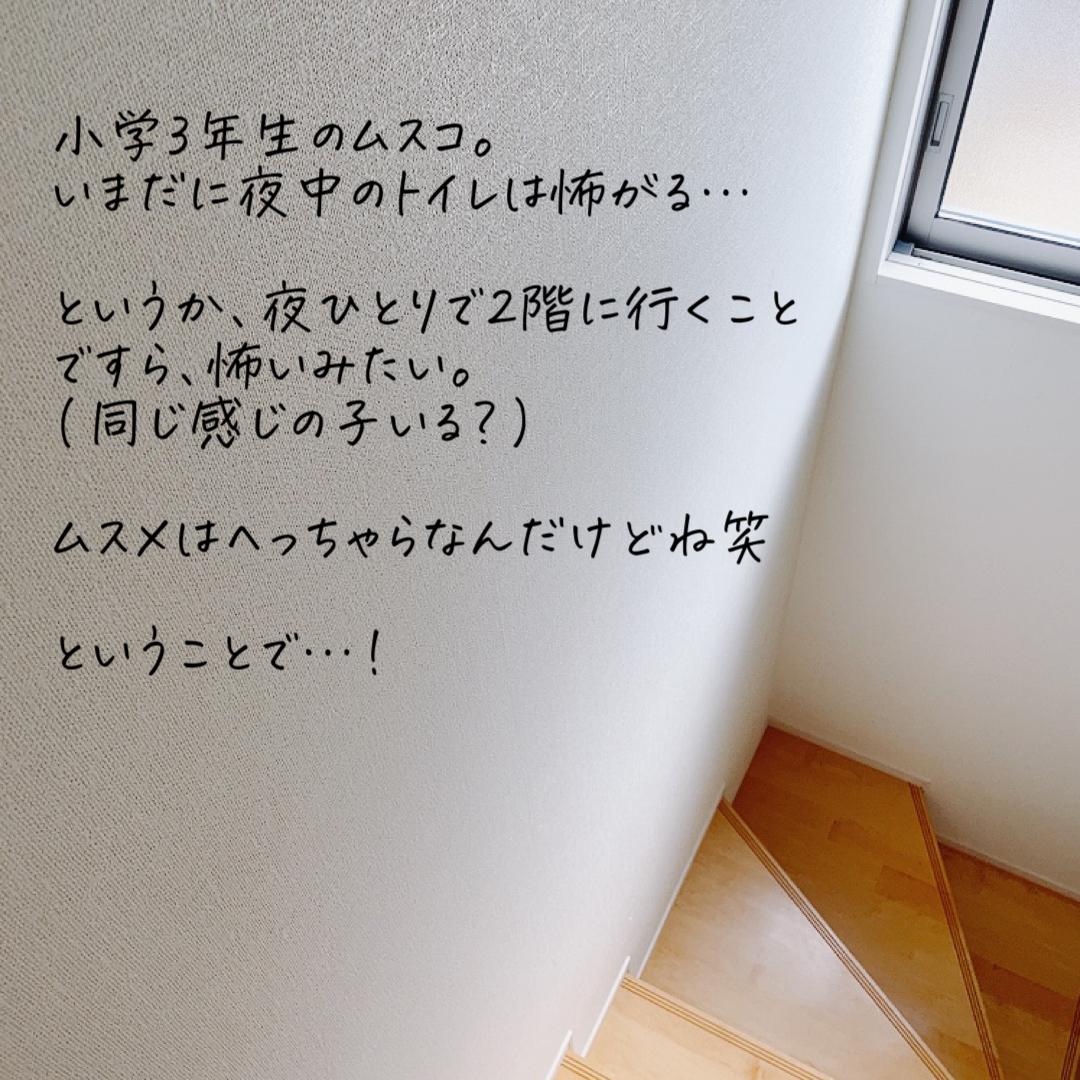 小学3年生のムスコ。
いまだに夜中のトイレは怖がる…
というか、夜ひとりで2階に行くこと
ですら、怖いみたい。
(同じ感じの子いる?)
ムスメはへっちゃらなんだけどね笑
ということで…!